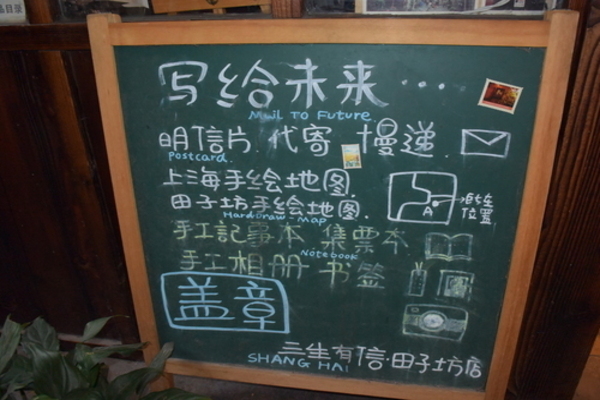 写给未来…
Mail To Future.
明信片.代寄 慢递.
Postcard.
上海手绘地图.
田子坊手绘地图.
Hard Draw Map
A
位置
手工記事本 集票本
Notebook
手工相册 书签
盖章
三生有信·田子坊店
SHANG HAI